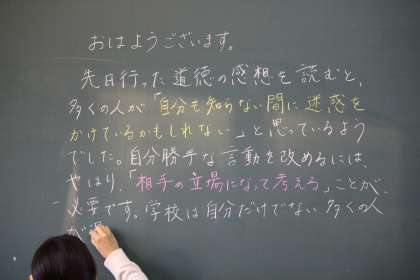 おはようございます。
先日行った道徳の感想を読むと、
多くの人が「自分も知らない間に迷惑を
かけているかもしれない」と思っているよう
でした。自分勝手な言動を改めるには、
やはり、「相手の立場になって考える」ことが、
必要です。学校は自分だけでない多くの人
が